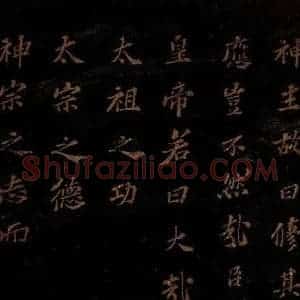 神主故曰修其
應豈不然哉臣
皇帝若曰大哉
太祖之功
太宗之德
神宗之志而
Shufaziliao.com